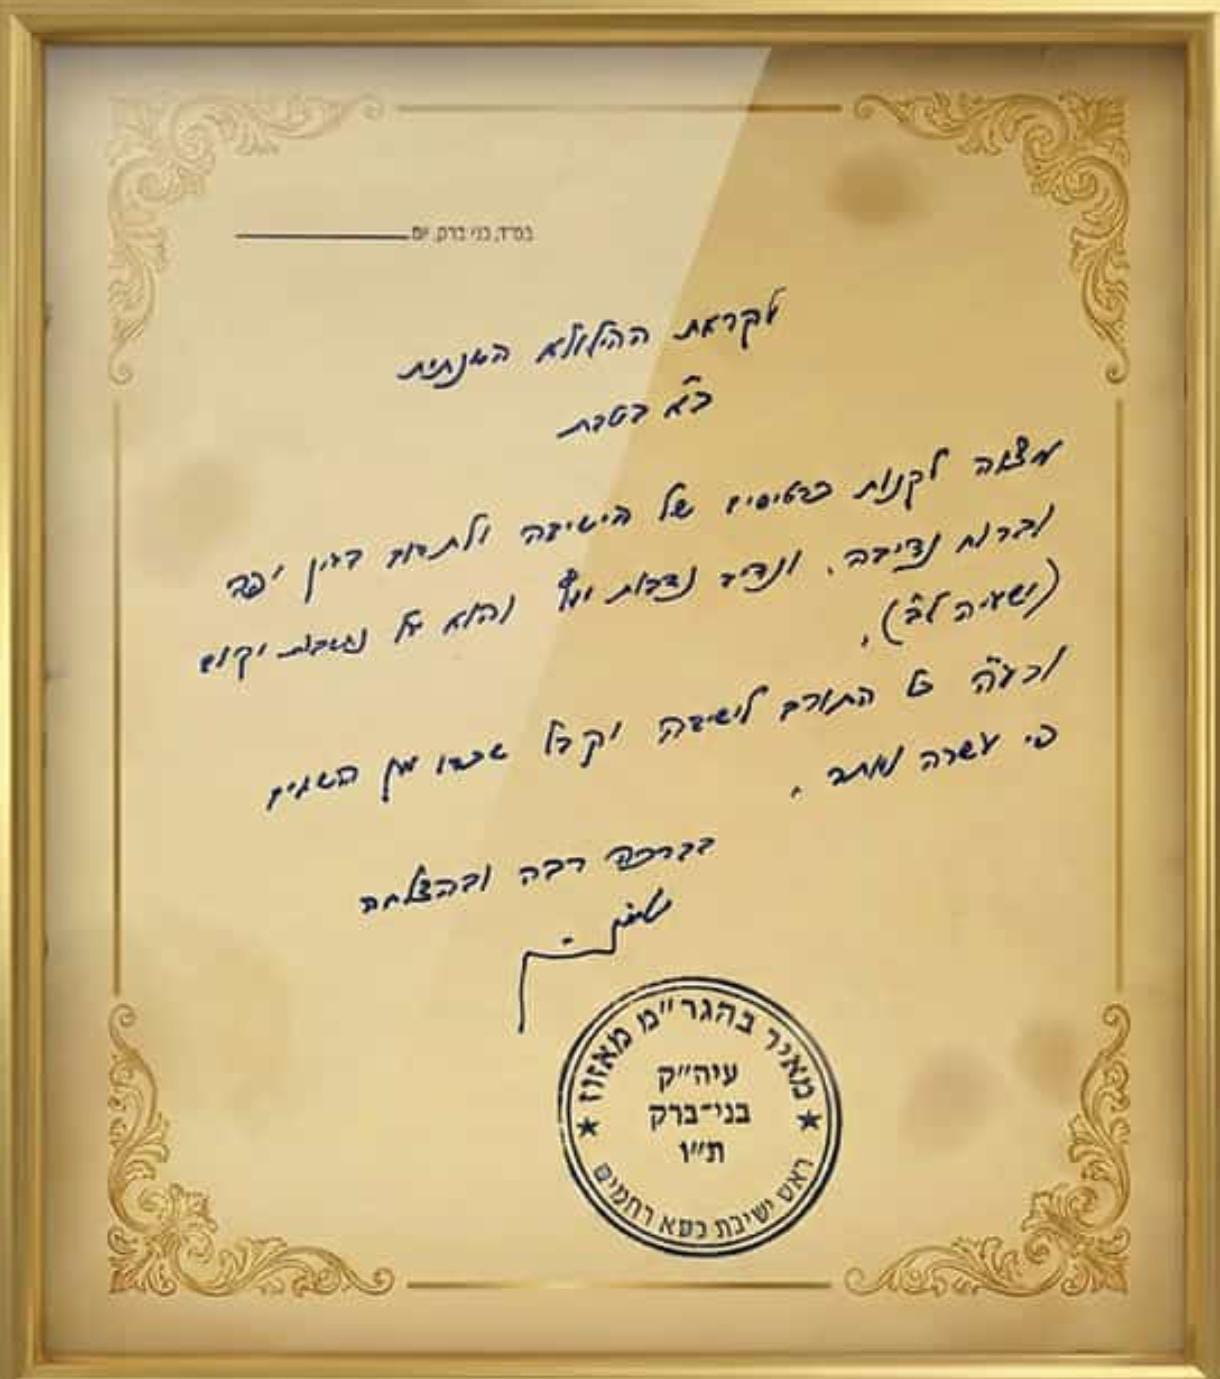 בס"ד, בני ברק, יום
לקראת ההילולא השנתית
כ"א בטבת
מצוה לקנות כרטיסים של הישיבה ולתרום בעין יפה
וברוח נדיבה. ונדיב נדבות יעץ והוא על נדיבות יקום
(ישעיה לב).
ובע"ה כל התורם לישיבה יקבל שכרו מן השמים
פי עשרה ויותר.
בברכה רבה ובהצלחה
מאיר בהגר"מ מאזוז
עיה"ק
בני-ברק
ת"ו
ראש ישיבת כסא רחמים